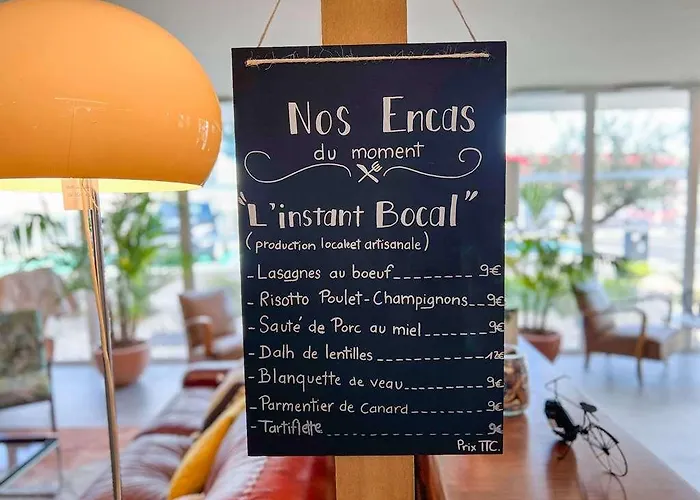 Nos Encas
du moment
"L'instant Bocal"
(production locale et artisanale)
- Lasagnes au boeuf_________ 9€
- Risotto Poulet-Champignons__ 9€
- Sauté de Porc au miel________ 9€
- Dalh de lentilles____________ 12€
- Blanquette de veau_________ 9€
- Parmentier de Canard________ 9€
- Tartiflette________________ 9€
Prix TTC.